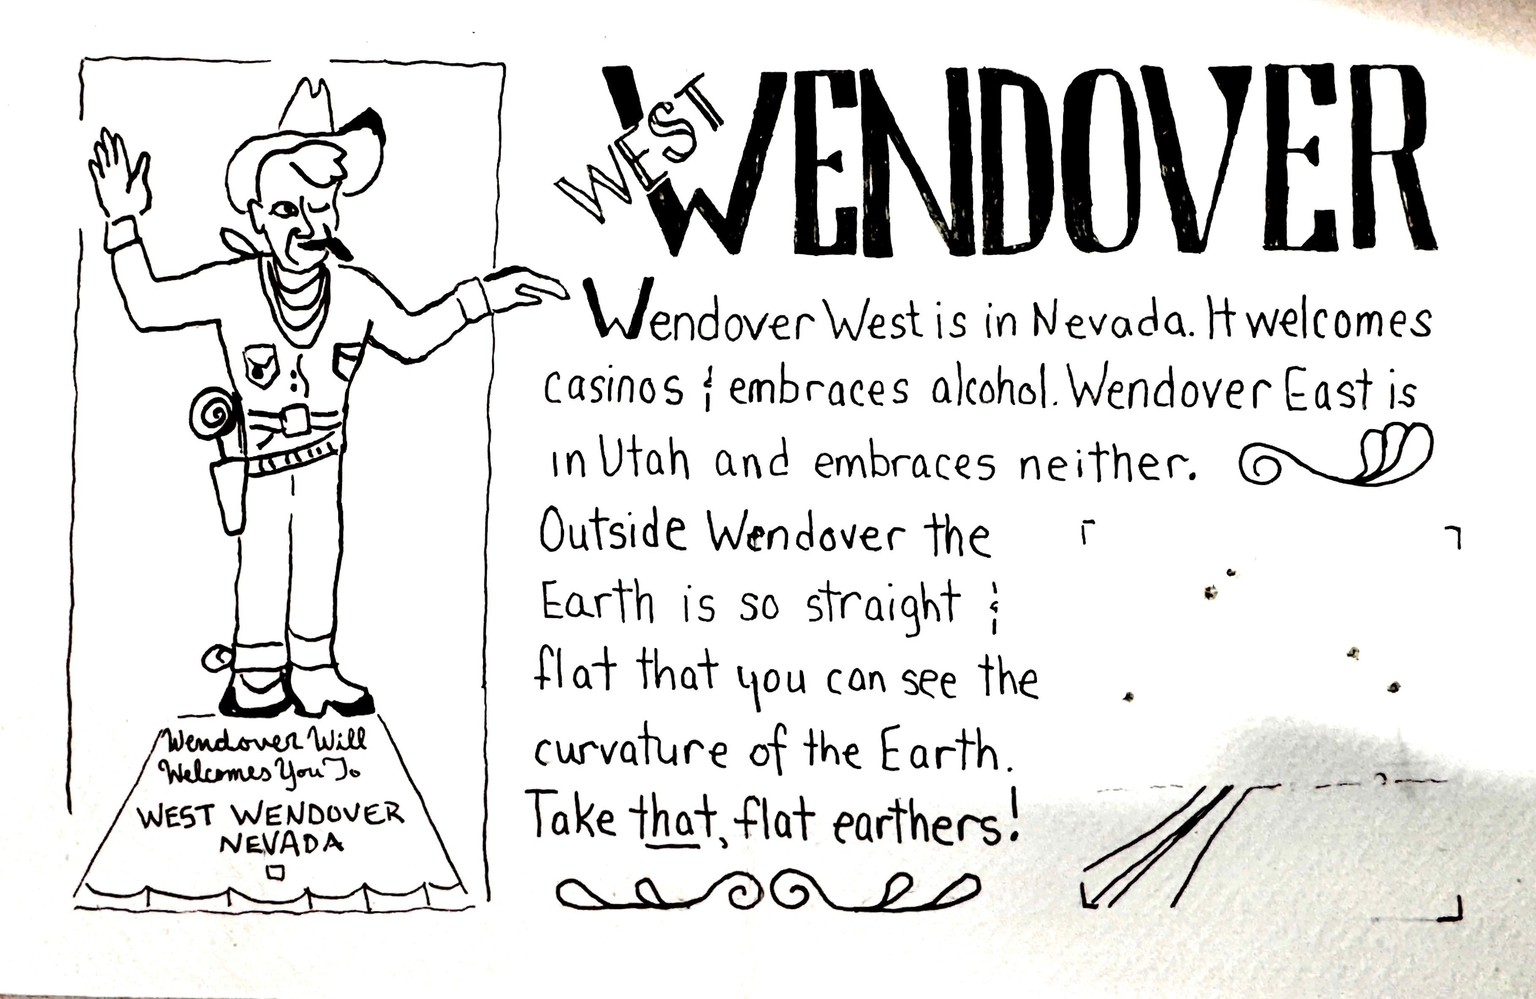 WEST
WENDOVER
Wendover West is in Nevada. It welcomes
casinos & embraces alcohol. Wendover East is
in Utah and embraces neither.
Outside Wendover the
Earth is so straight &
flat that you can see the
curvature of the Earth.
Take that, flat earthers!
Wendover Will
Welcomes You To
WEST WENDOVER
NEVADA